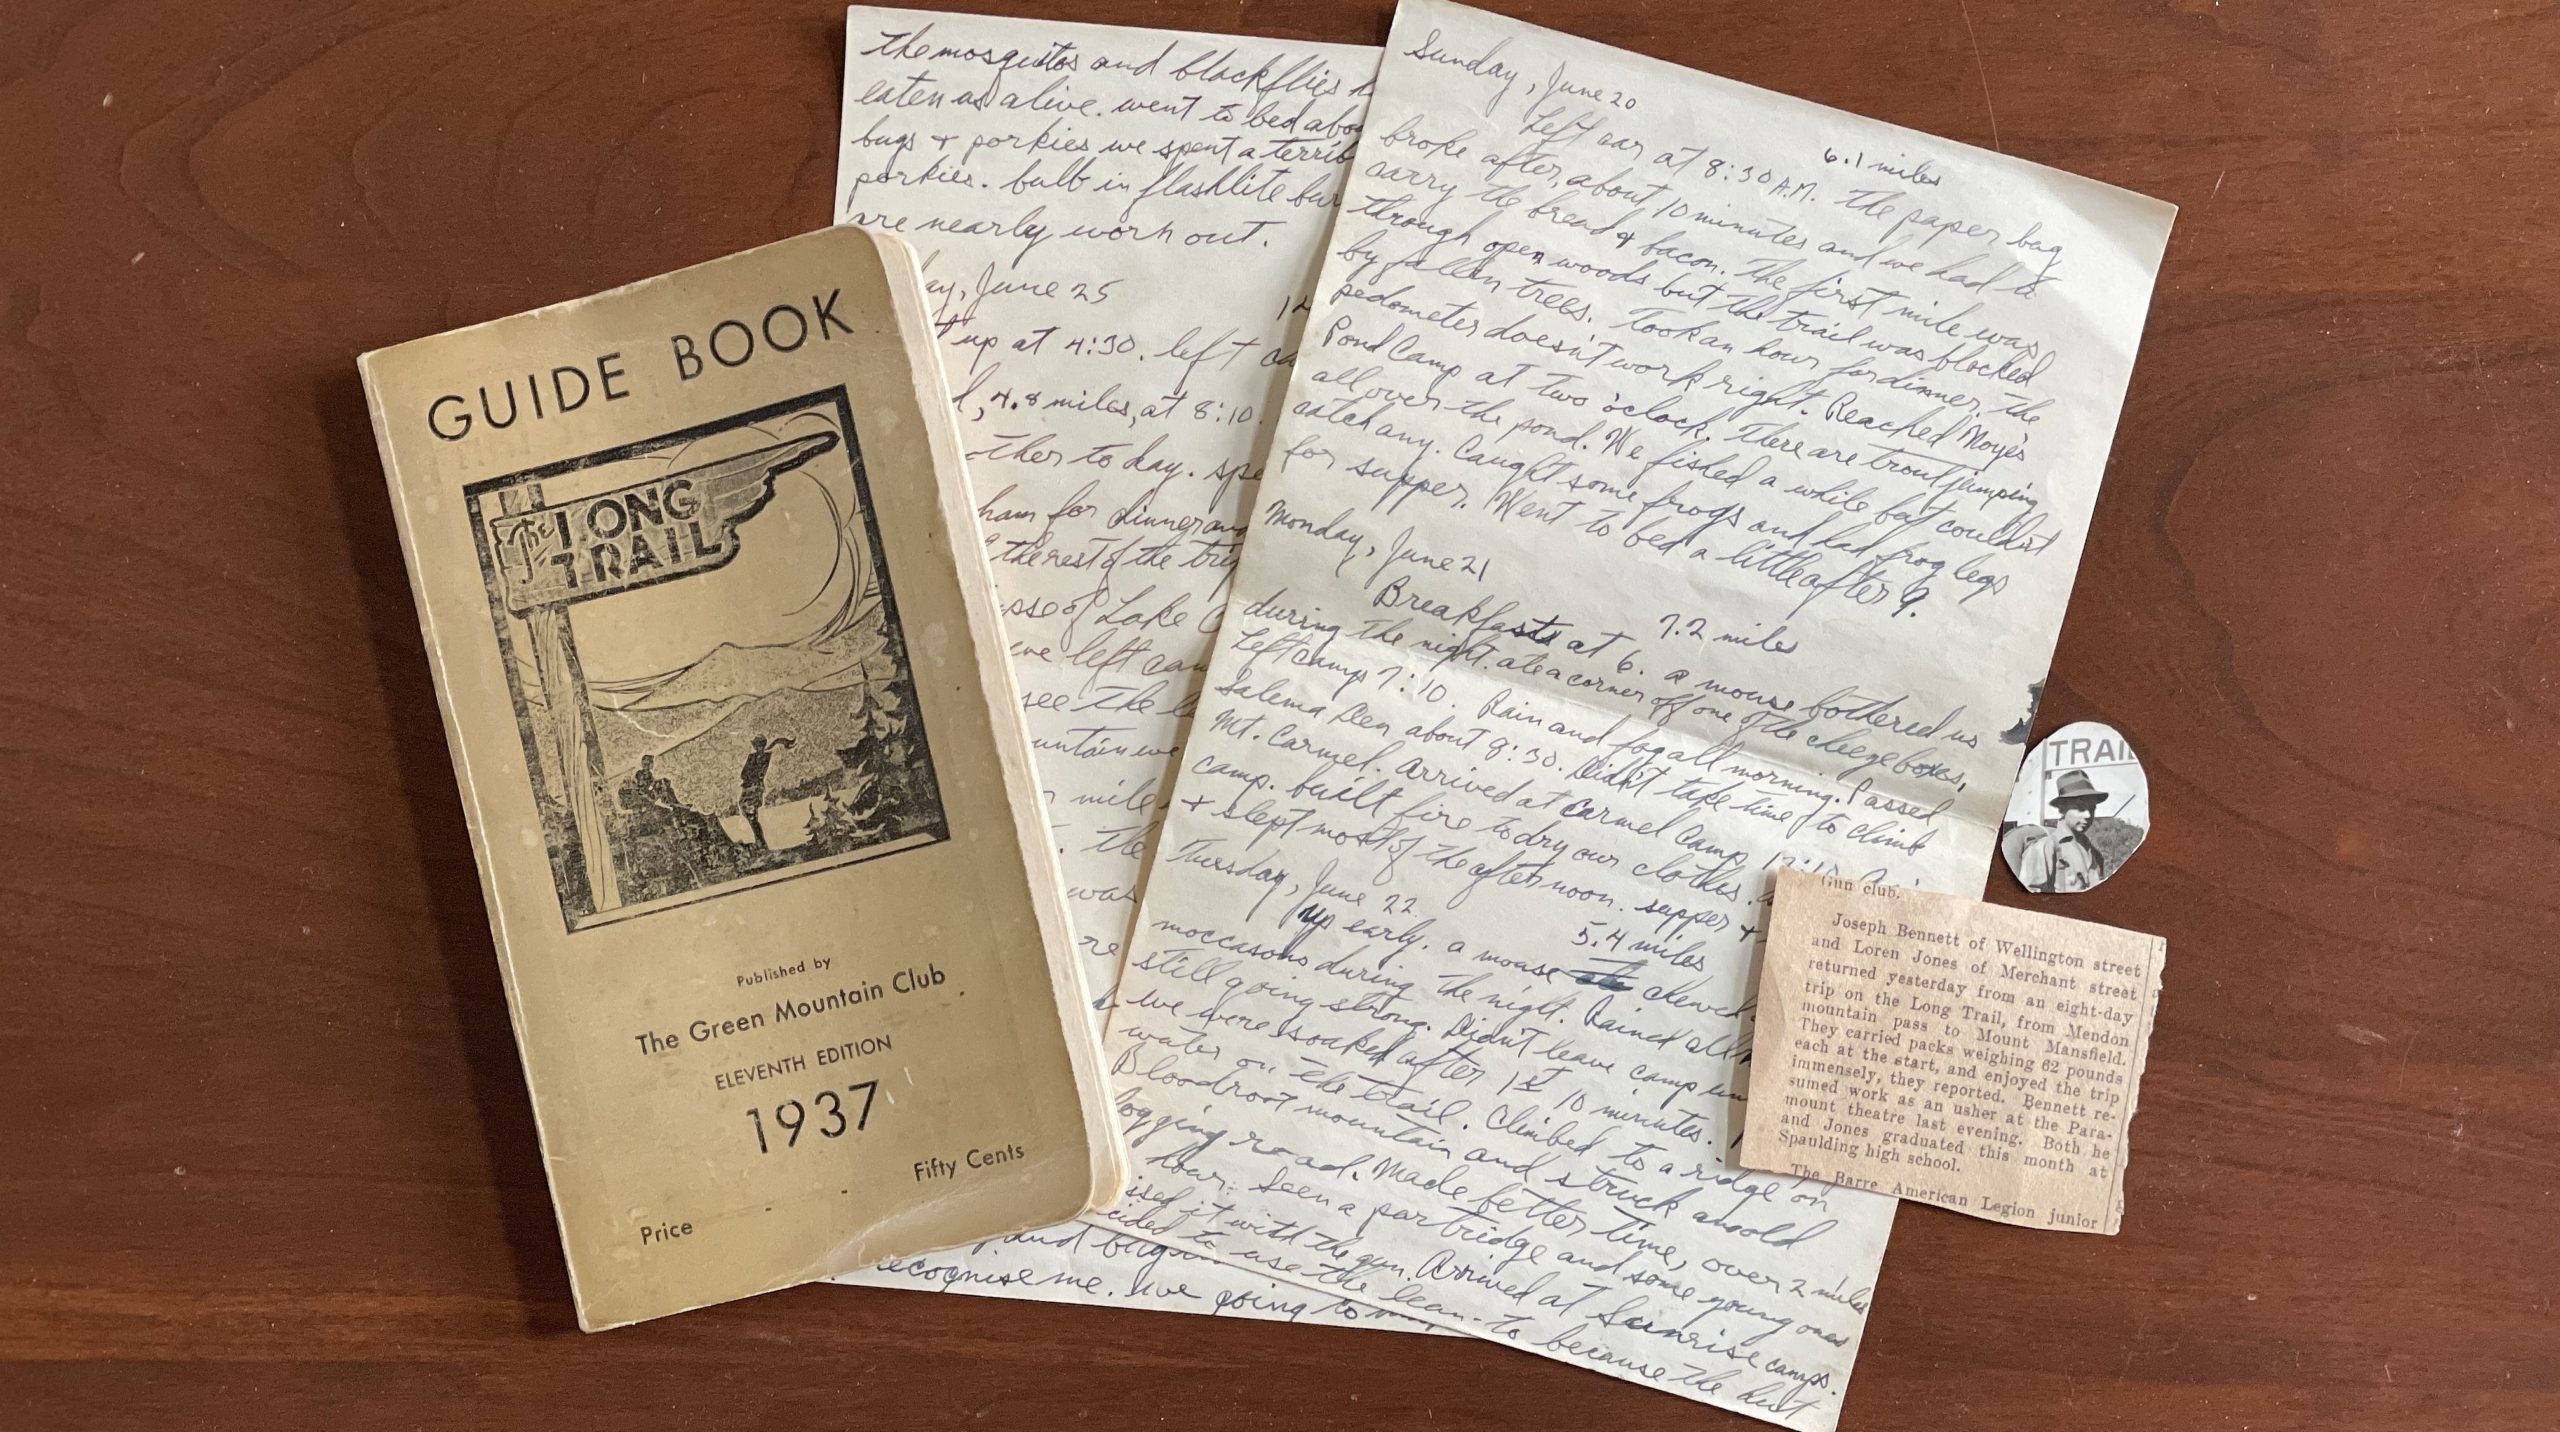 GUIDE BOOK
The LONG
TRAIL
Published by
The Green Mountain Club
ELEVENTH EDITION
1937
Price Fifty Cents
the mosquitos and blackflies
eaten us alive. went to bed
bugs + porkies we spent a
porkies. bulb in flashlite
are nearly worn out.
June 25
up at 4:30. left
4.8 miles, at 8:10.
to day.
for dinner and
the rest of the
of Lake
we left
see the
mile
the
was
recognise me. going to
Sunday, June 20
6.1 miles
Left car at 8:30 A.M. The paper bag
broke after about 10 minutes and we had to
carry the bread + bacon. The first mile was
through open woods but the trail was blocked
by fallen trees. Took an hour for dinner. The
pedometer doesn't work right. Reached Noyes
Pond Camp at two o'clock. There are trout jumping
all over the pond. We fished a while but couldn't
catch any. Caught some frogs and had frog legs
for supper. Went to bed a little after 9.
Monday, June 21
7.2 miles
Breakfast at 6. a mouse bothered us
during the night. ate a corner off one of the cheese boxes,
Left camp 7:10. Rain and fog all morning. Passed
Salema Den about 8:30. Didn't take time to climb
Mt. Carmel. Arrived at Carmel Camp
camp. built fire to dry our clothes.
+ slept most of the afternoon. supper +
Tuesday, June 22
5.4 miles
up early. a mouse chewed
moccasons during the night. Rained all
still going strong. Didn't leave camp
we were soaked after 1st 10 minutes.
water on the trail. Climbed to a ridge on
Bloodroot mountain and struck an old
logging road. Made better time, over 2 miles
hour. Seen a partridge and some young ones
it with the gun. Arrived at Sunrise camps.
to use the lean-to because the
TRAIL
Gun club.
Joseph Bennett of Wellington street
and Loren Jones of Merchant street
returned yesterday from an eight-day
trip on the Long Trail, from Mendon
mountain pass to Mount Mansfield.
They carried packs weighing 62 pounds
each at the start, and enjoyed the trip
immensely, they reported. Bennett re-
sumed work as an usher at the Para-
mount theatre last evening. Both he
and Jones graduated this month at
Spaulding high school.
The Barre American Legion junior